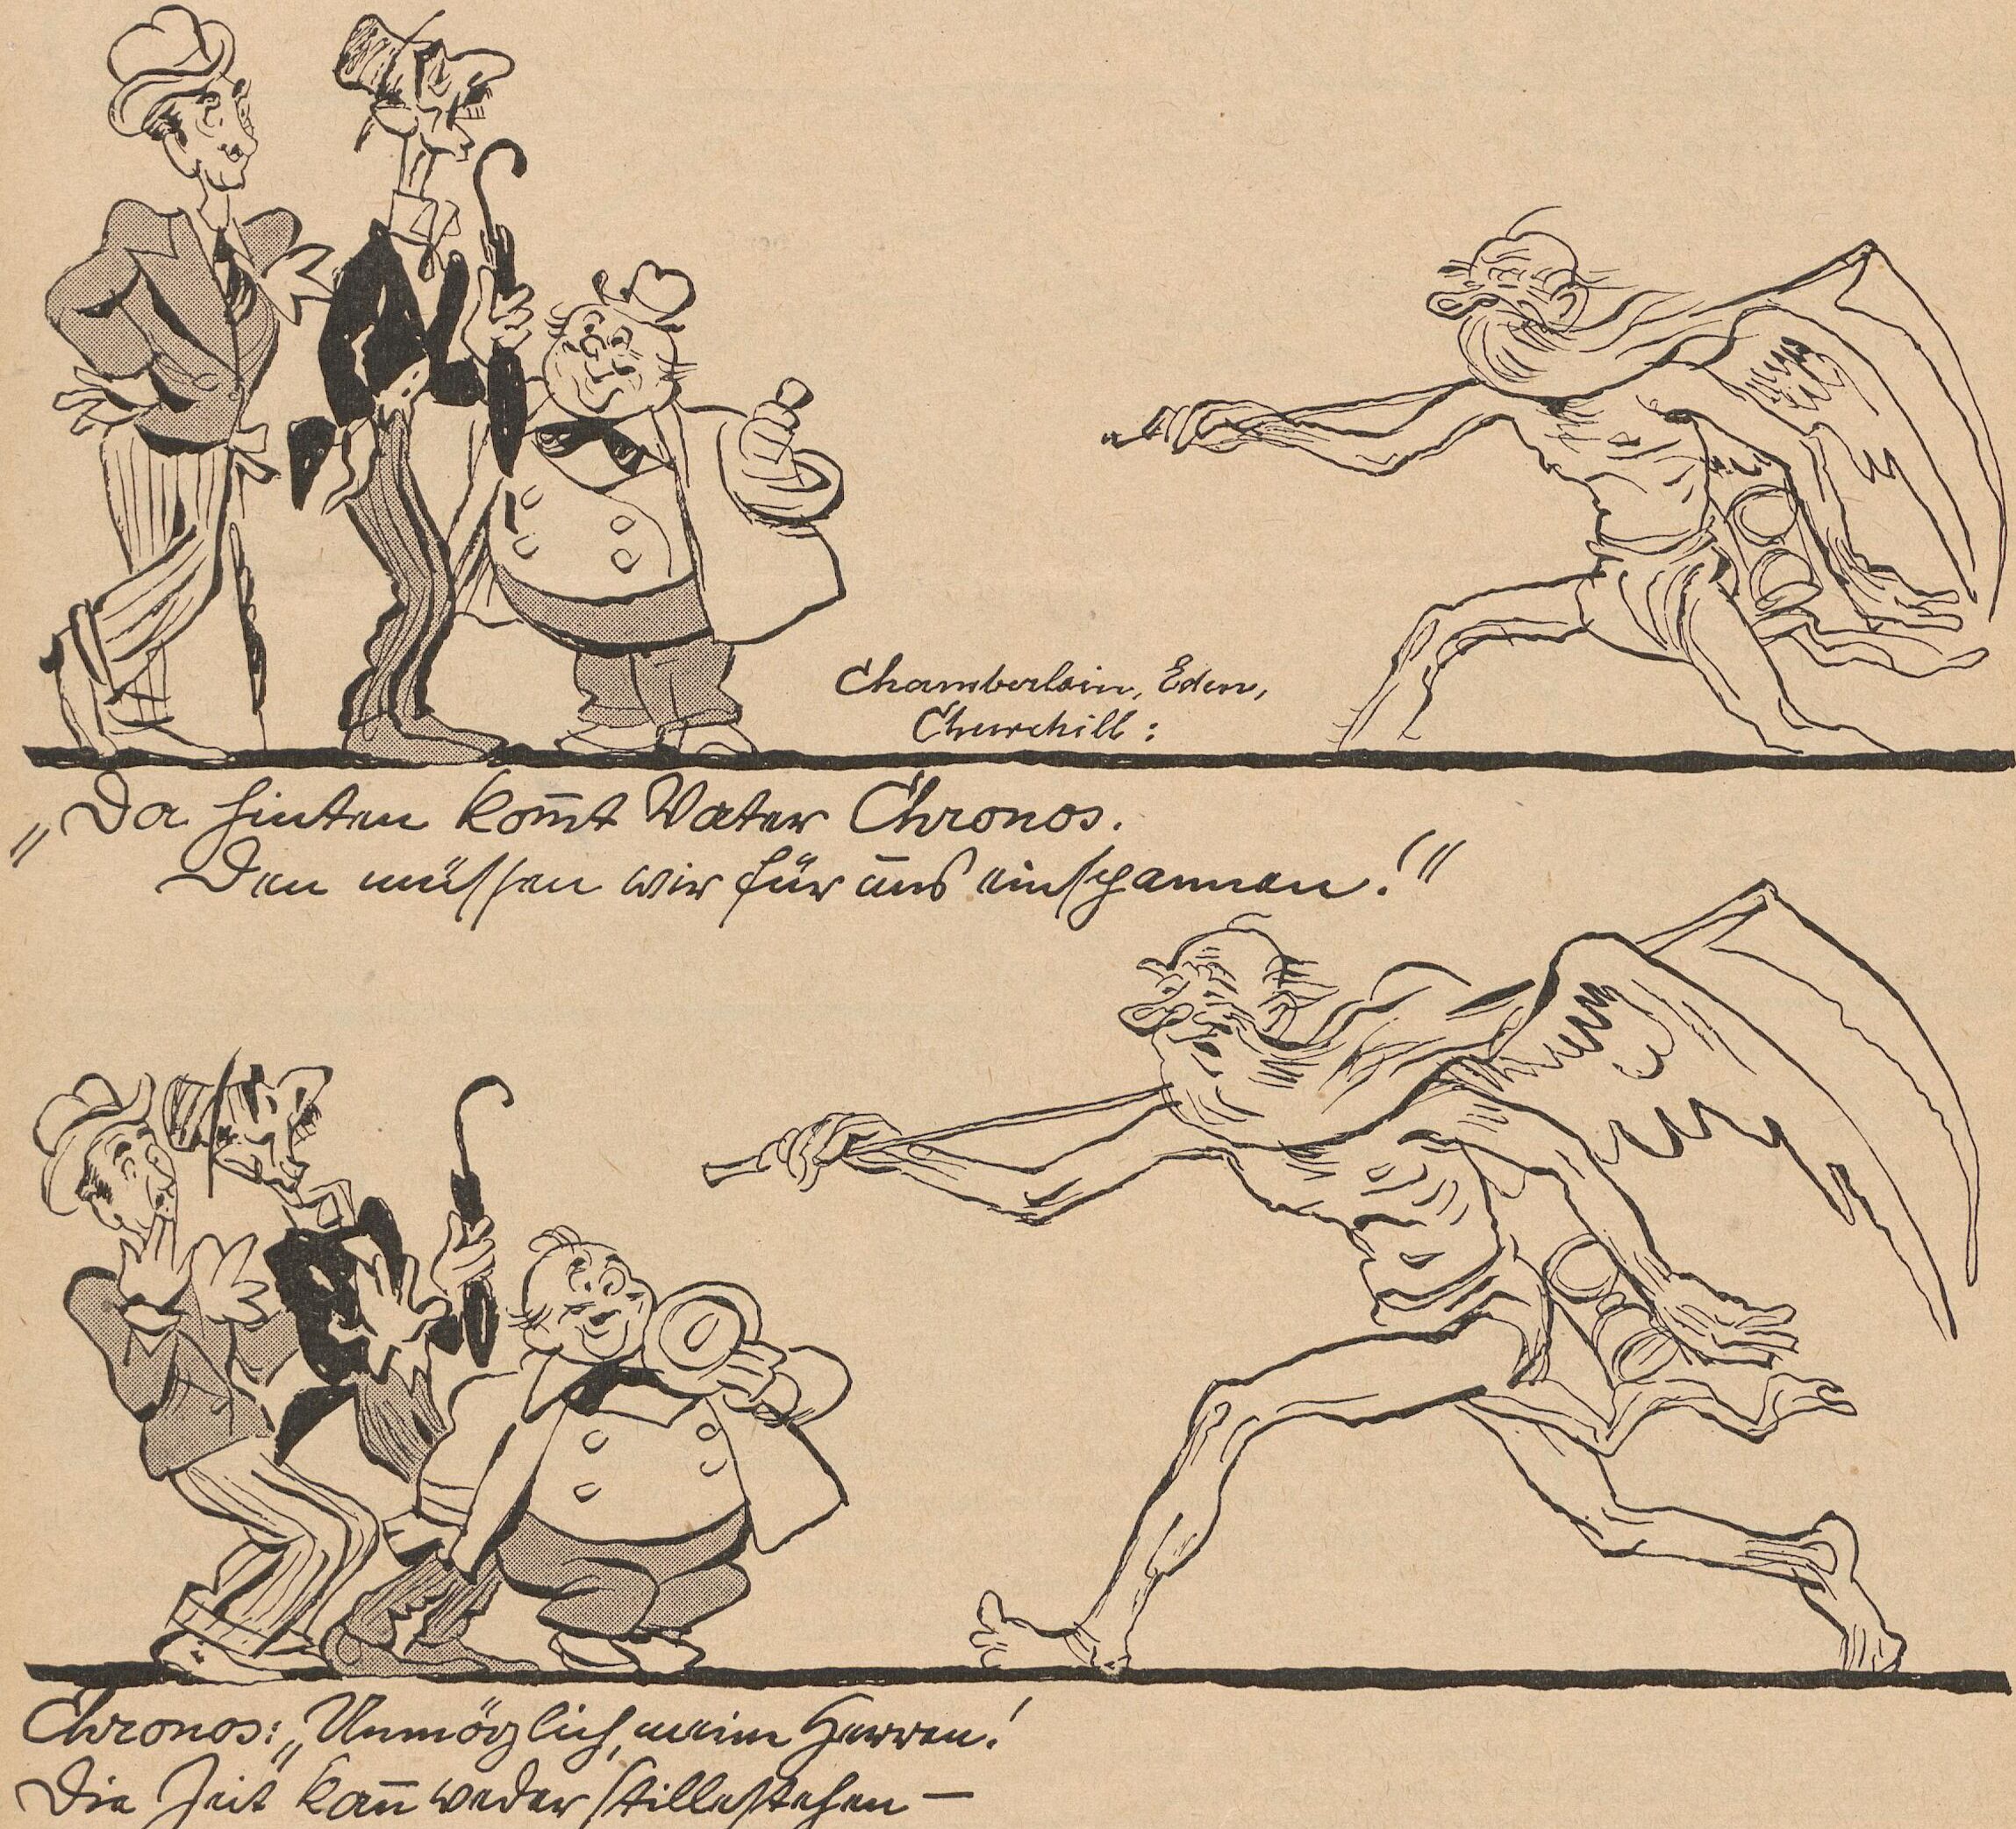 Chamberlain, Eden,
Churchill:
„Da hinten kom̄t Vater Chronos.
Den müssen wir für uns einspannen!“
Chronos: „Unmöglich, meine Herren!
Die Zeit kan̄ weder stillestehen —